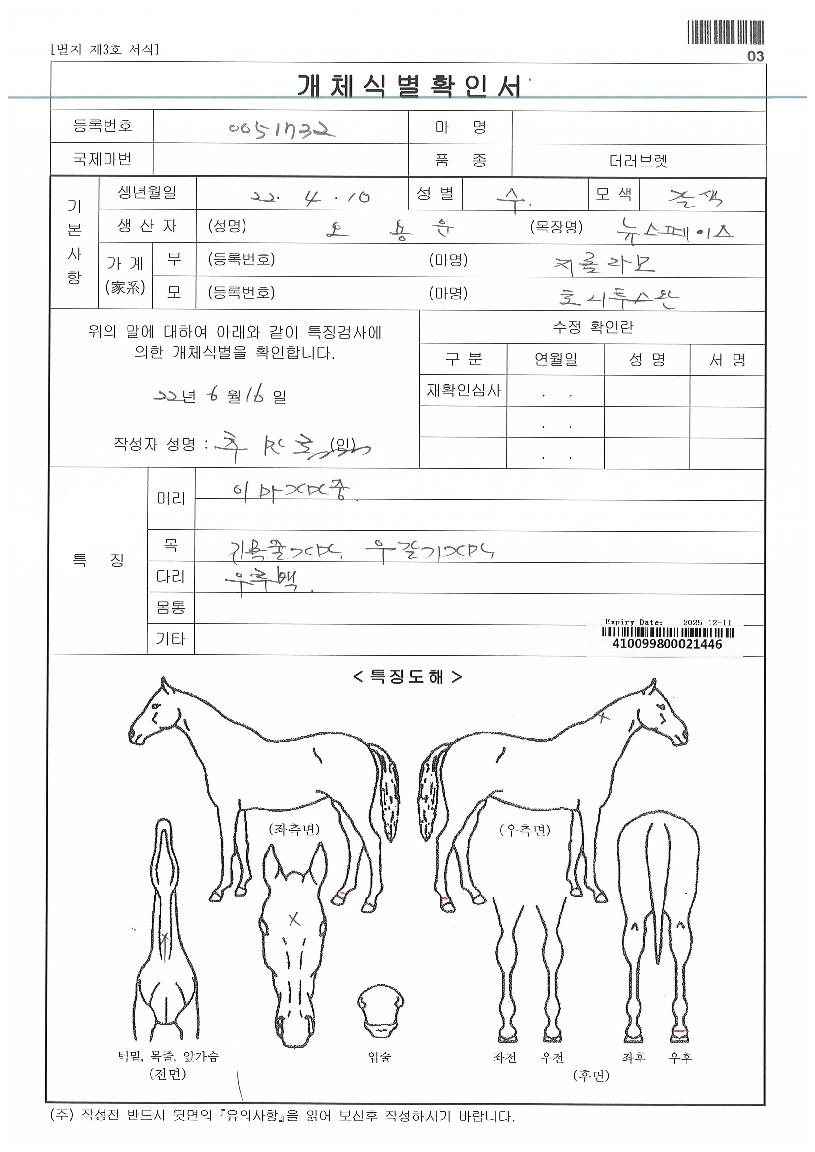 [별지 제3호 서식]
03
개체식별확인서
등록번호 0051732 마 명
국제마번 품 종 더러브렛
기본사항
생년월일 22. 4. 10 성별 수. 모색 갈색
생산자 (성명) 오용운 (목장명) 뉴스페이스
가계 (家系) 부 (등록번호) (마명) 지롤라모
모 (등록번호) (마명) 호시투스완
위의 말에 대하여 아래와 같이 특징검사에
의한 개체식별을 확인합니다.
22년 6월 16일
작성자 성명 : (인)
수정 확인란
구분 연월일 성명 서명
재확인심사 . .
. .
. .
특 징
머리
목
다리 우후백.
몸통
기타
Expiry Date: 2025-12-11
410099800021446
< 특징도해 >
(좌측면) (우측면)
턱밑, 목줄, 앞가슴
(전면)
입술
좌전 우전 좌후 우후
(후면)
(주) 작성전 반드시 뒷면의 『유의사항』을 읽어 보신후 작성하시기 바랍니다.